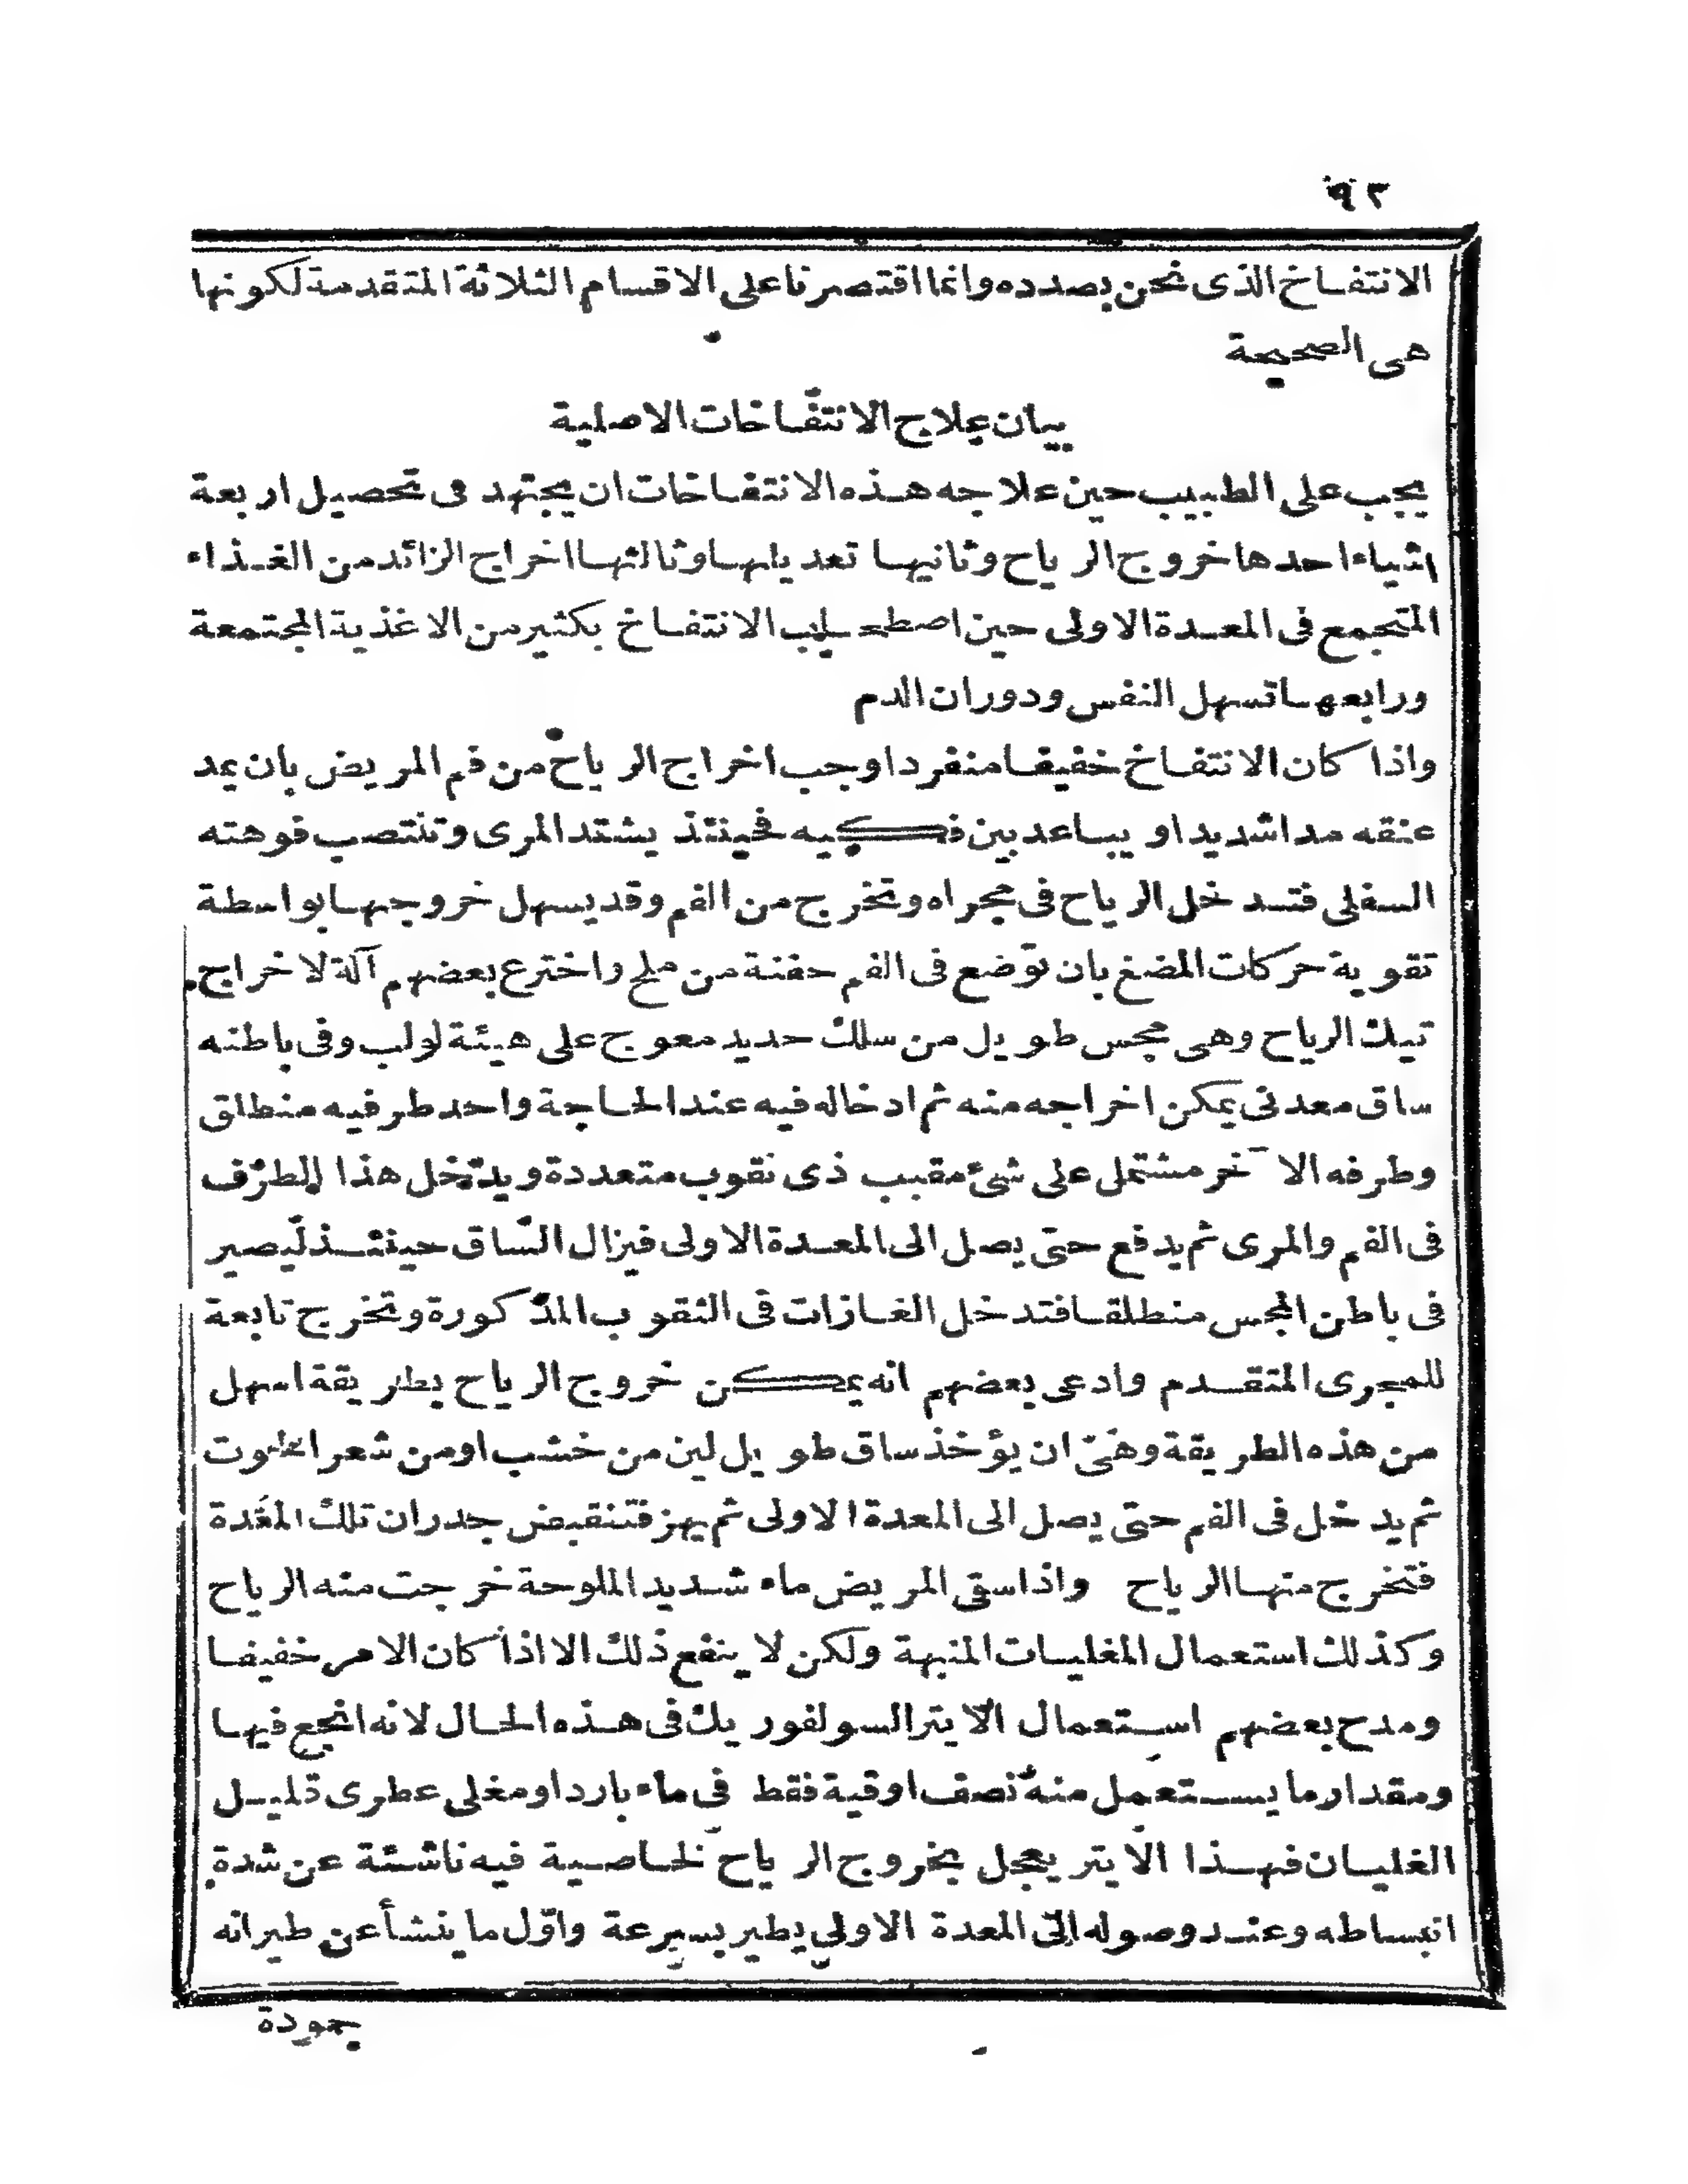 ٩٢
الانتفاخ الذى نحن بصدده وانما اقتصرنا على الاقسام الثلاثة المتقدمة لكونها
هى الصحيحة
بيان علاج الانتفاخات الاصلية
يجب على الطبيب حين علاجه هذه الانتفاخات ان يجتهد فى تحصيل اربعة
اشياء احدها خروج الرياح وثانيها تعديلها وثالثها اخراج الزائد من الغذاء
المتجمع فى المعدة الاولى حين اصطحاب الانتفاخ بكثير من الاغذية المجتمعة
ورابعها تسهل النفس ودوران الدم
واذا كان الانتفاخ خفيفا منفردا وجب اخراج الرياح من فم المريض بان يمد
عنقه مدا شديدا ويباعد بين فكيه فحينئذ يشتد المرى وتنتصب فوهته
السفلى فتدخل الرياح فى مجراه وتخرج من الفم وقد يسهل خروجها بواسطة
تقوية حركات المضغ بان توضع فى الفم حفنة من ملح واخترع بعضهم آلة لاخراج
تيك الرياح وهى مجس طويل من سلك حديد معوج على هيئة لولب وفى باطنه
ساق معدنى يمكن اخراجه منه ثم ادخاله فيه عند الحاجة واحد طرفيه منطلق
وطرفه الآخر مشتمل على شئ مقبب ذى ثقوب متعددة ويدخل هذا الطرف
فى الفم والمرى ثم يدفع حتى يصل الى المعدة الاولى فيزال الساق حينئذ ليصير
فى باطن المجس منطلقا فتدخل الغازات فى الثقوب المذكورة وتخرج تابعة
للمجرى المتقدم وادعى بعضهم انه يمكن خروج الرياح بطريقة اسهل
من هذه الطريقة وهى ان يؤخذ ساق طويل لين من خشب او من شعر الحوت
ثم يدخل فى الفم حتى يصل الى المعدة الاولى ثم يهز فتنقبض جدران تلك المعدة
فتخرج منها الرياح واذا سقى المريض ماء شديد الملوحة خرجت منه الرياح
وكذلك استعمال المغليات المنبهة ولكن لا ينفع ذلك الا اذا كان الامر خفيفا
ومدح بعضهم استعمال الايتر السولفوريك فى هذه الحال لانه انجع فيها
ومقدار ما يستعمل منه نصف اوقية فقط فى ماء بارد او مغلى عطرى قليل
الغليان فهذا الايتر يعجل بخروج الرياح لخاصية فيه ناشئة عن شدة
انبساطه وعند وصوله الى المعدة الاولى يطير بسرعة واول ما ينشأ عن طيرانه
بجودة